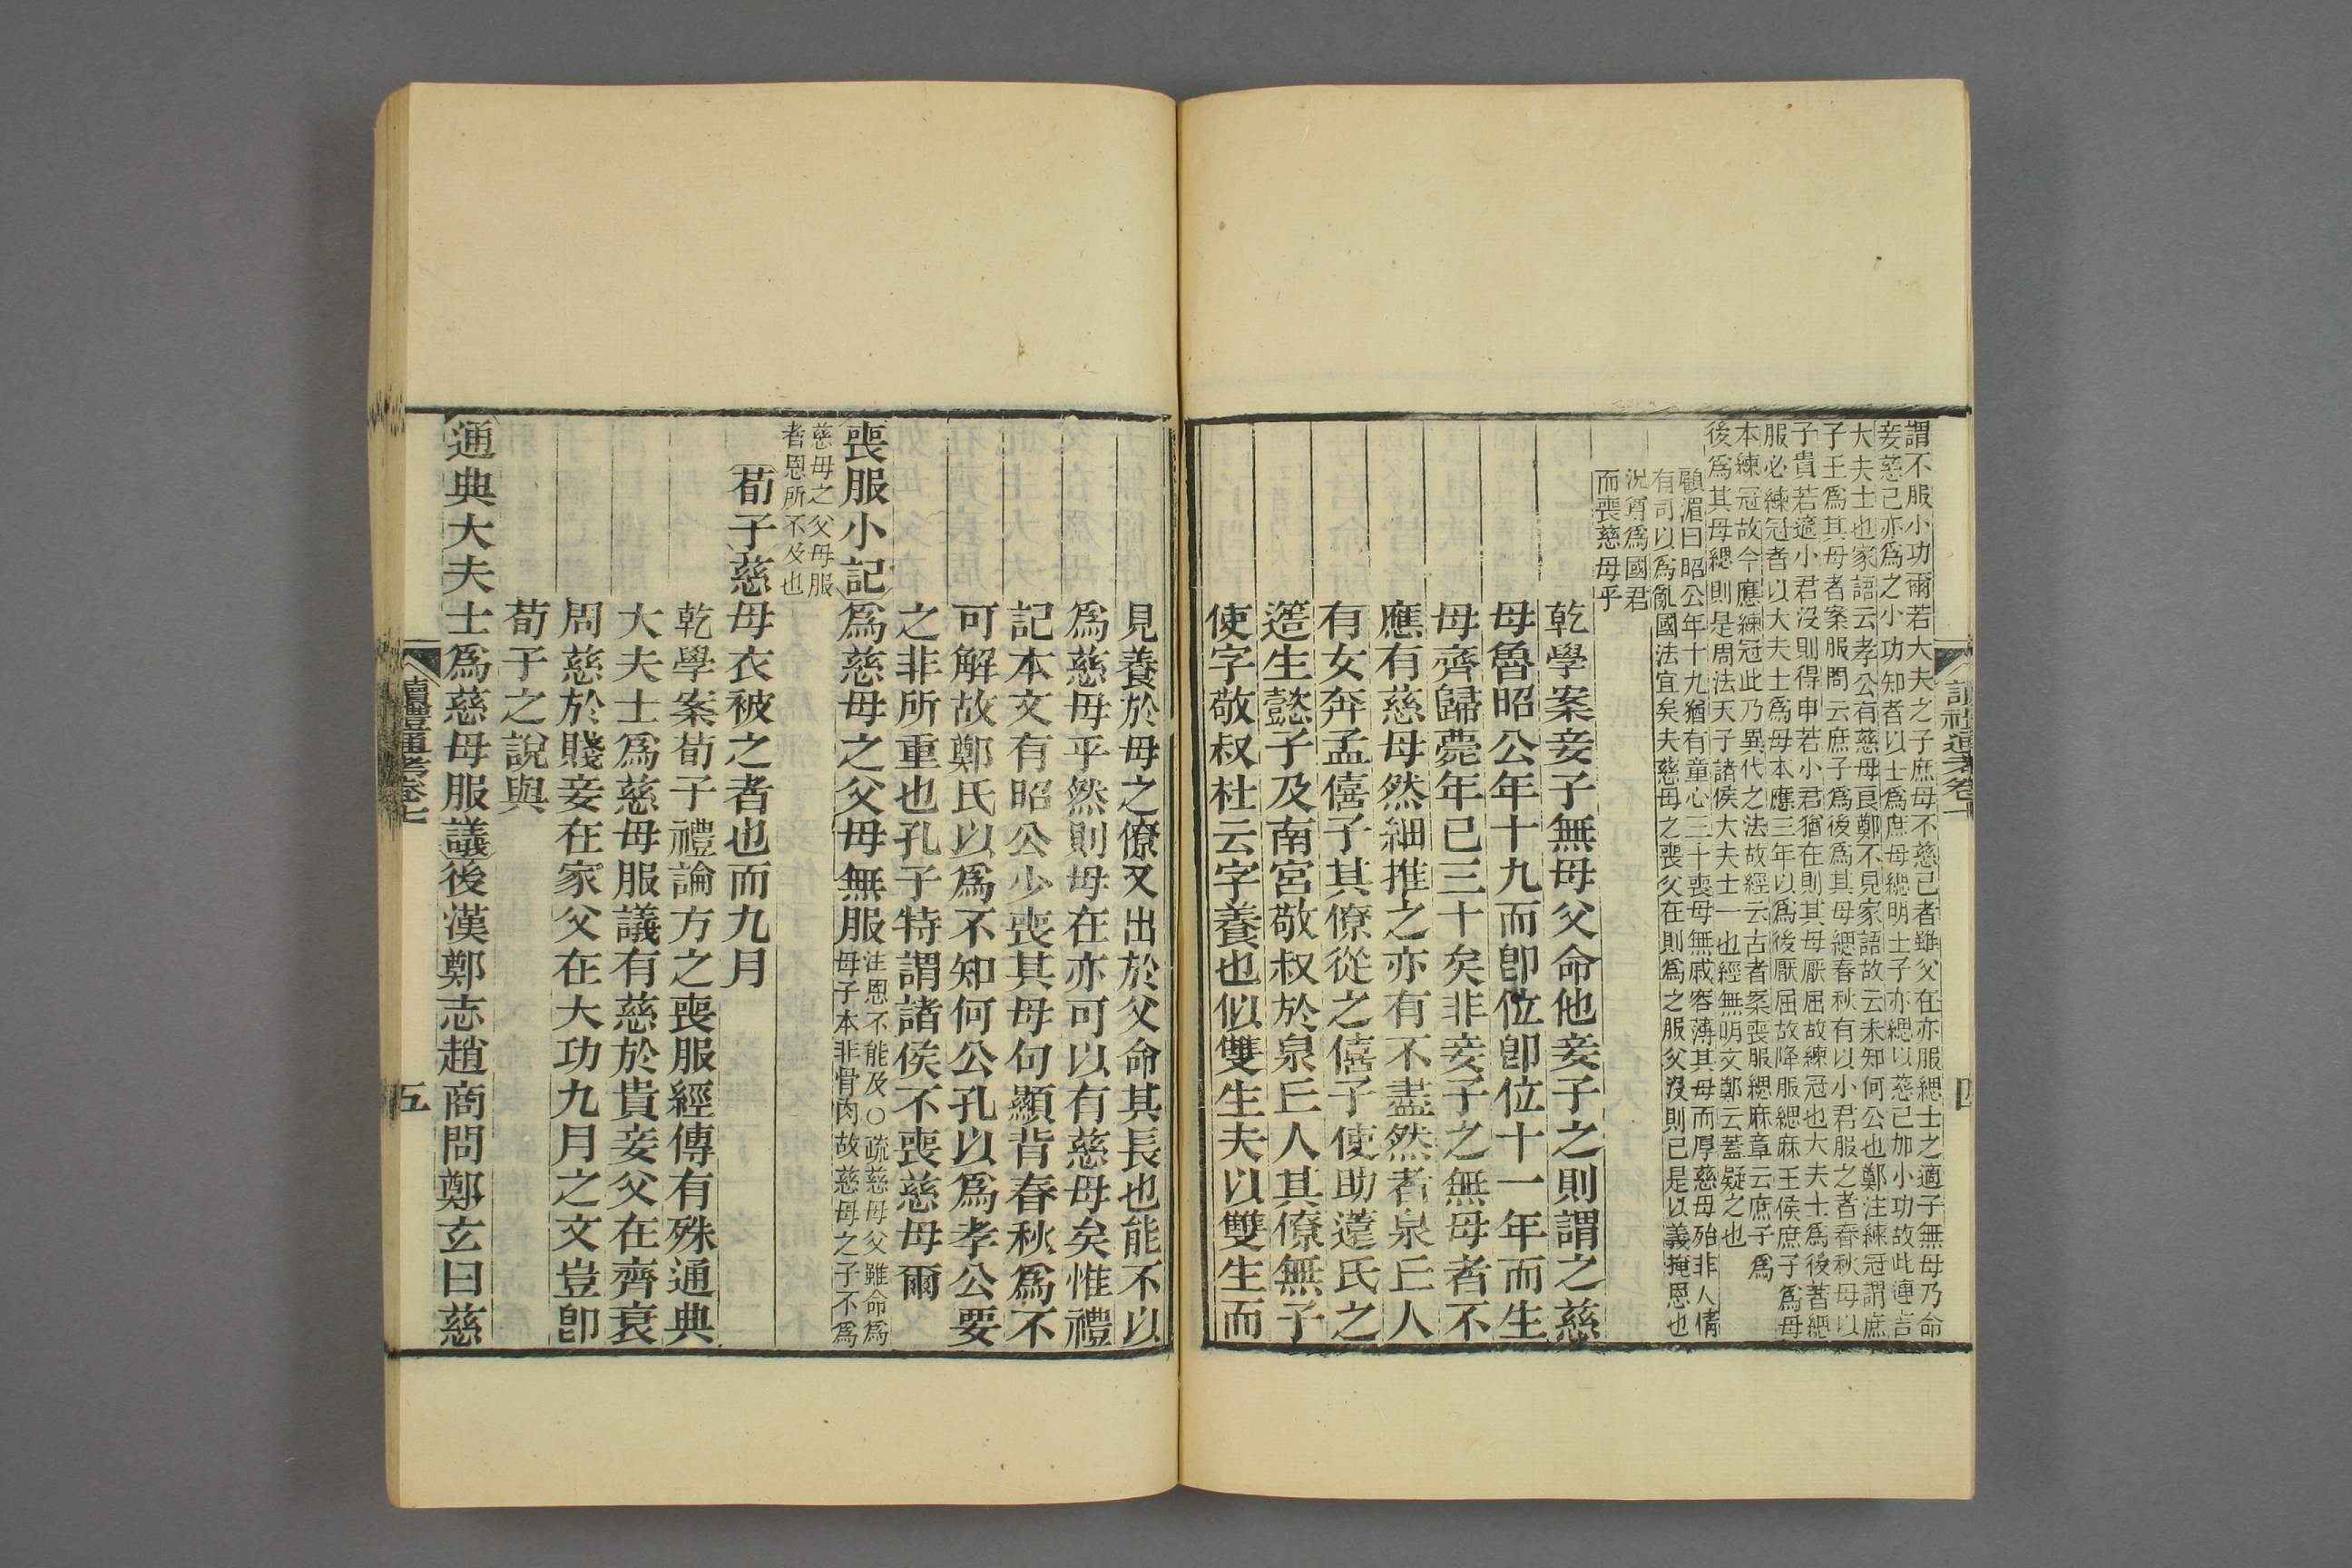 讀禮通考卷七
四
謂不服小功爾若大夫之子庶母不慈己者雖父在亦服緦士之適子無母乃命
妾慈己亦爲之小功知者以士爲庶母緦明士子亦緦以慈己加小功故此連言
大夫士也家語云孝公有慈母良鄭不見家語故云未知何公也鄭注練冠謂庶
子王爲其母者案服問云庶子爲後爲其母緦春秋有以小君服之者春秋母以
子貴若適小君沒則得申若小君猶在則其母厭屈故練冠也大夫士爲後著緦
服必練冠者以大夫士爲母本應三年以爲後厭屈故降服緦麻王侯庶子爲母
本練冠故今應練冠此乃異代之法故經云古者案喪服緦麻章云庶子爲
後爲其母緦則是周法天子諸侯大夫士一也經無明文鄭云蓋疑之也
顧湄曰昭公年十九猶有童心三十喪母無戚容薄其母而厚慈母殆非人情
有司以爲亂國法宜矣夫慈母之喪父在則爲之服父沒則已是以義掩恩也
況尊爲國君
而喪慈母乎
乾學案妾子無母父命他妾子之則謂之慈
母魯昭公年十九而卽位卽位十一年而生
母齊歸薨年已三十矣非妾子之無母者不
應有慈母然細推之亦有不盡然者泉丘人
有女奔孟僖子其僚從之僖子使助薳氏之
簉生懿子及南宮敬叔於泉丘人其僚無子
使字敬叔杜云字養也似雙生夫以雙生而
見養於母之僚又出於父命其長也能不以
爲慈母乎然則母在亦可以有慈母矣惟禮
記本文有昭公少喪其母句顯背春秋爲不
可解故鄭氏以爲不知何公孔以爲孝公要
之非所重也孔子特謂諸侯不喪慈母爾
喪服小記爲慈母之父母無服注恩不能及○疏慈母父雖命爲
母子本非骨肉故慈母之子不爲
慈母之父母服
者恩所不及也
荀子慈母衣被之者也而九月
乾學案荀子禮論方之喪服經傳有殊通典
大夫士爲慈母服議有慈於貴妾父在齊衰
周慈於賤妾在家父在大功九月之文豈卽
荀子之說與
通典大夫士爲慈母服議後漢鄭志趙商問鄭玄曰慈
讀禮通考卷七
五